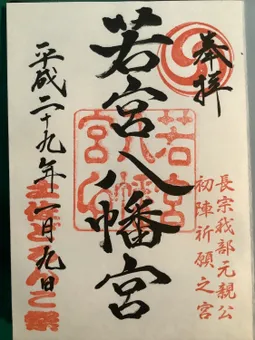 奉拝
長宗我部元親公
初陣祈願之宮
若宮八幡宮
若宮八幡宮
平成二十九年一月九日